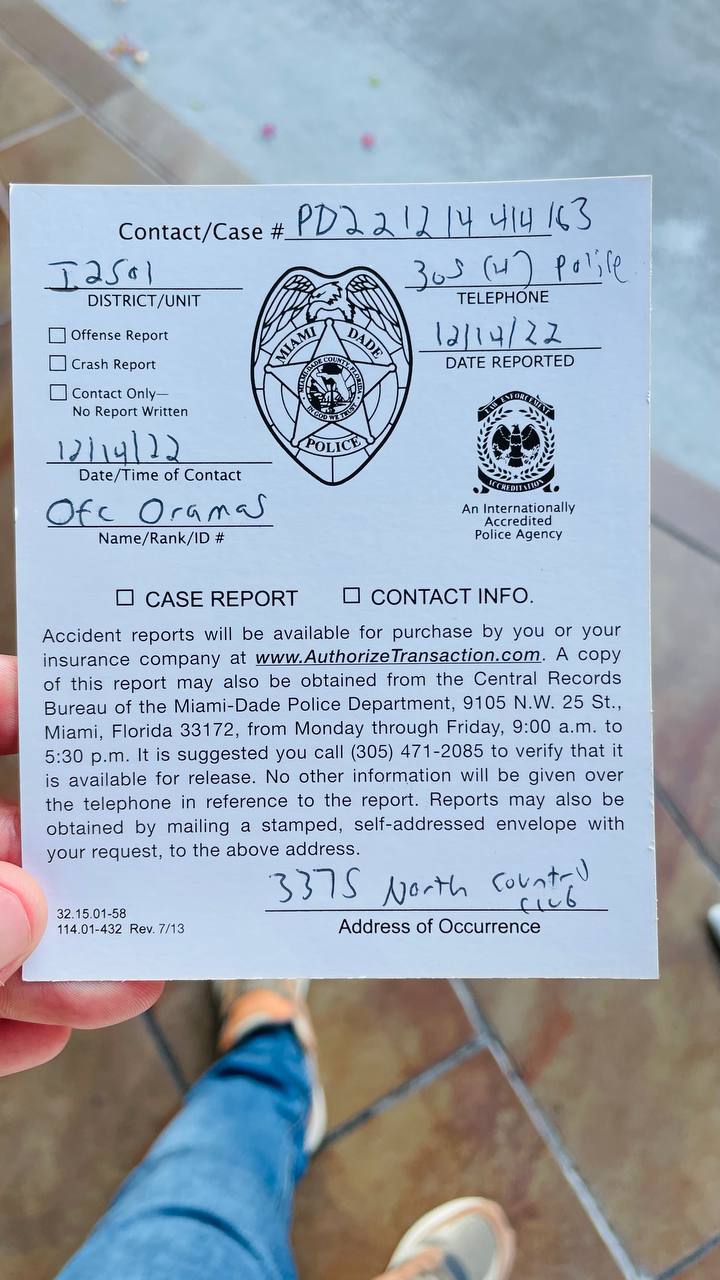 Contact/Case # PD221214 414163
I2501
DISTRICT/UNIT
305 (4) Police
TELEPHONE
Offense Report
Crash Report
Contact Only—
No Report Written
MIAMI DADE
MIAMI-DADE COUNTY, FLORIDA
IN GOD WE TRUST
POLICE
12/14/22
DATE REPORTED
12/14/22
Date/Time of Contact
LAW ENFORCEMENT
ACCREDITATION
Ofc Oramas
Name/Rank/ID #
An Internationally
Accredited
Police Agency
CASE REPORT CONTACT INFO.
Accident reports will be available for purchase by you or your
insurance company at www.AuthorizeTransaction.com. A copy
of this report may also be obtained from the Central Records
Bureau of the Miami-Dade Police Department, 9105 N.W. 25 St.,
Miami, Florida 33172, from Monday through Friday, 9:00 a.m. to
5:30 p.m. It is suggested you call (305) 471-2085 to verify that it
is available for release. No other information will be given over
the telephone in reference to the report. Reports may also be
obtained by mailing a stamped, self-addressed envelope with
your request, to the above address.
3375 North Country
Club
Address of Occurrence
32.15.01-58
114.01-432 Rev. 7/13